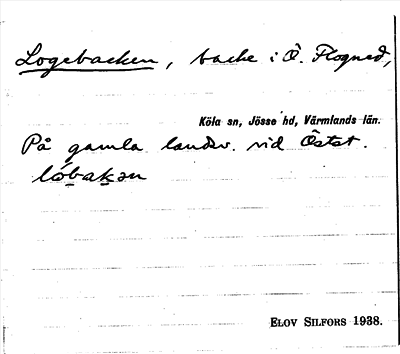 Logebacken, backe i Ö. Flogned,
Köla sn, Jösse hd, Värmlands län.
På gamla landsv. vid Östst.
lo̊bakən
ELOV SILFORS 1938.